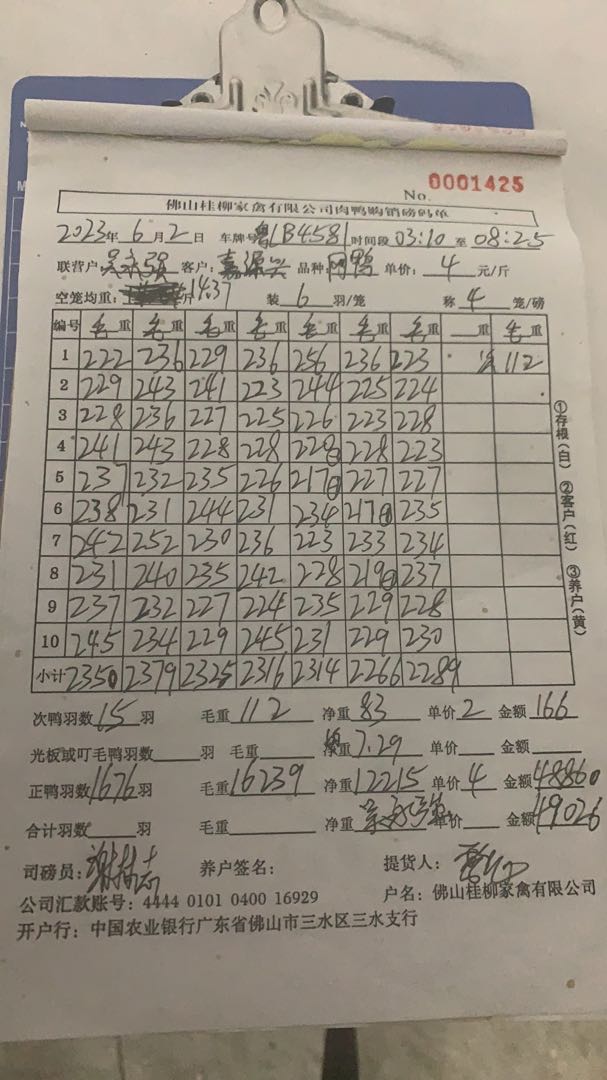 No. 0001425
佛山桂柳家禽有限公司肉鸭购销磅码单
2023年 6 月 2 日 车牌号 粤LB4581 时间段 03:10 至 08:25
联营户: 吴永强 客户: 嘉源兴 品种 网鸭 单价: 4 元/斤
空笼均重: 14.37 装 6 羽/笼 称 4 笼/磅
编号 毛重 毛重 毛重 毛重 毛重 毛重 毛重 重 毛重
1 222 236 229 236 256 236 223 次 112
2 229 243 241 223 244 225 224
3 228 236 227 225 226 223 228
4 241 243 228 228 220 228 223
5 237 232 235 226 217 227 227
6 238 231 244 231 234 217 235
7 242 252 230 236 223 233 234
8 231 240 235 242 228 219 237
9 237 232 227 224 235 229 228
10 245 234 229 245 231 229 230
小计 2350 2379 2325 2316 2314 2266 2289
①存根(白) ②客户(红) ③养户(黄)
次鸭羽数 15 羽 毛重 112 净重 83 单价 2 金额 166
光板或叮毛鸭羽数 羽 毛重 净重 7.29 单价 金额
正鸭羽数 1676 羽 毛重 16239 净重 12215 单价 4 金额 48860
合计羽数 羽 毛重 净重 吴永强 单价 金额 49026
司磅员: 谢林志 养户签名: 提货人:
公司汇款账号: 4444 0101 0400 16929 户名: 佛山桂柳家禽有限公司
开户行: 中国农业银行广东省佛山市三水区三水支行